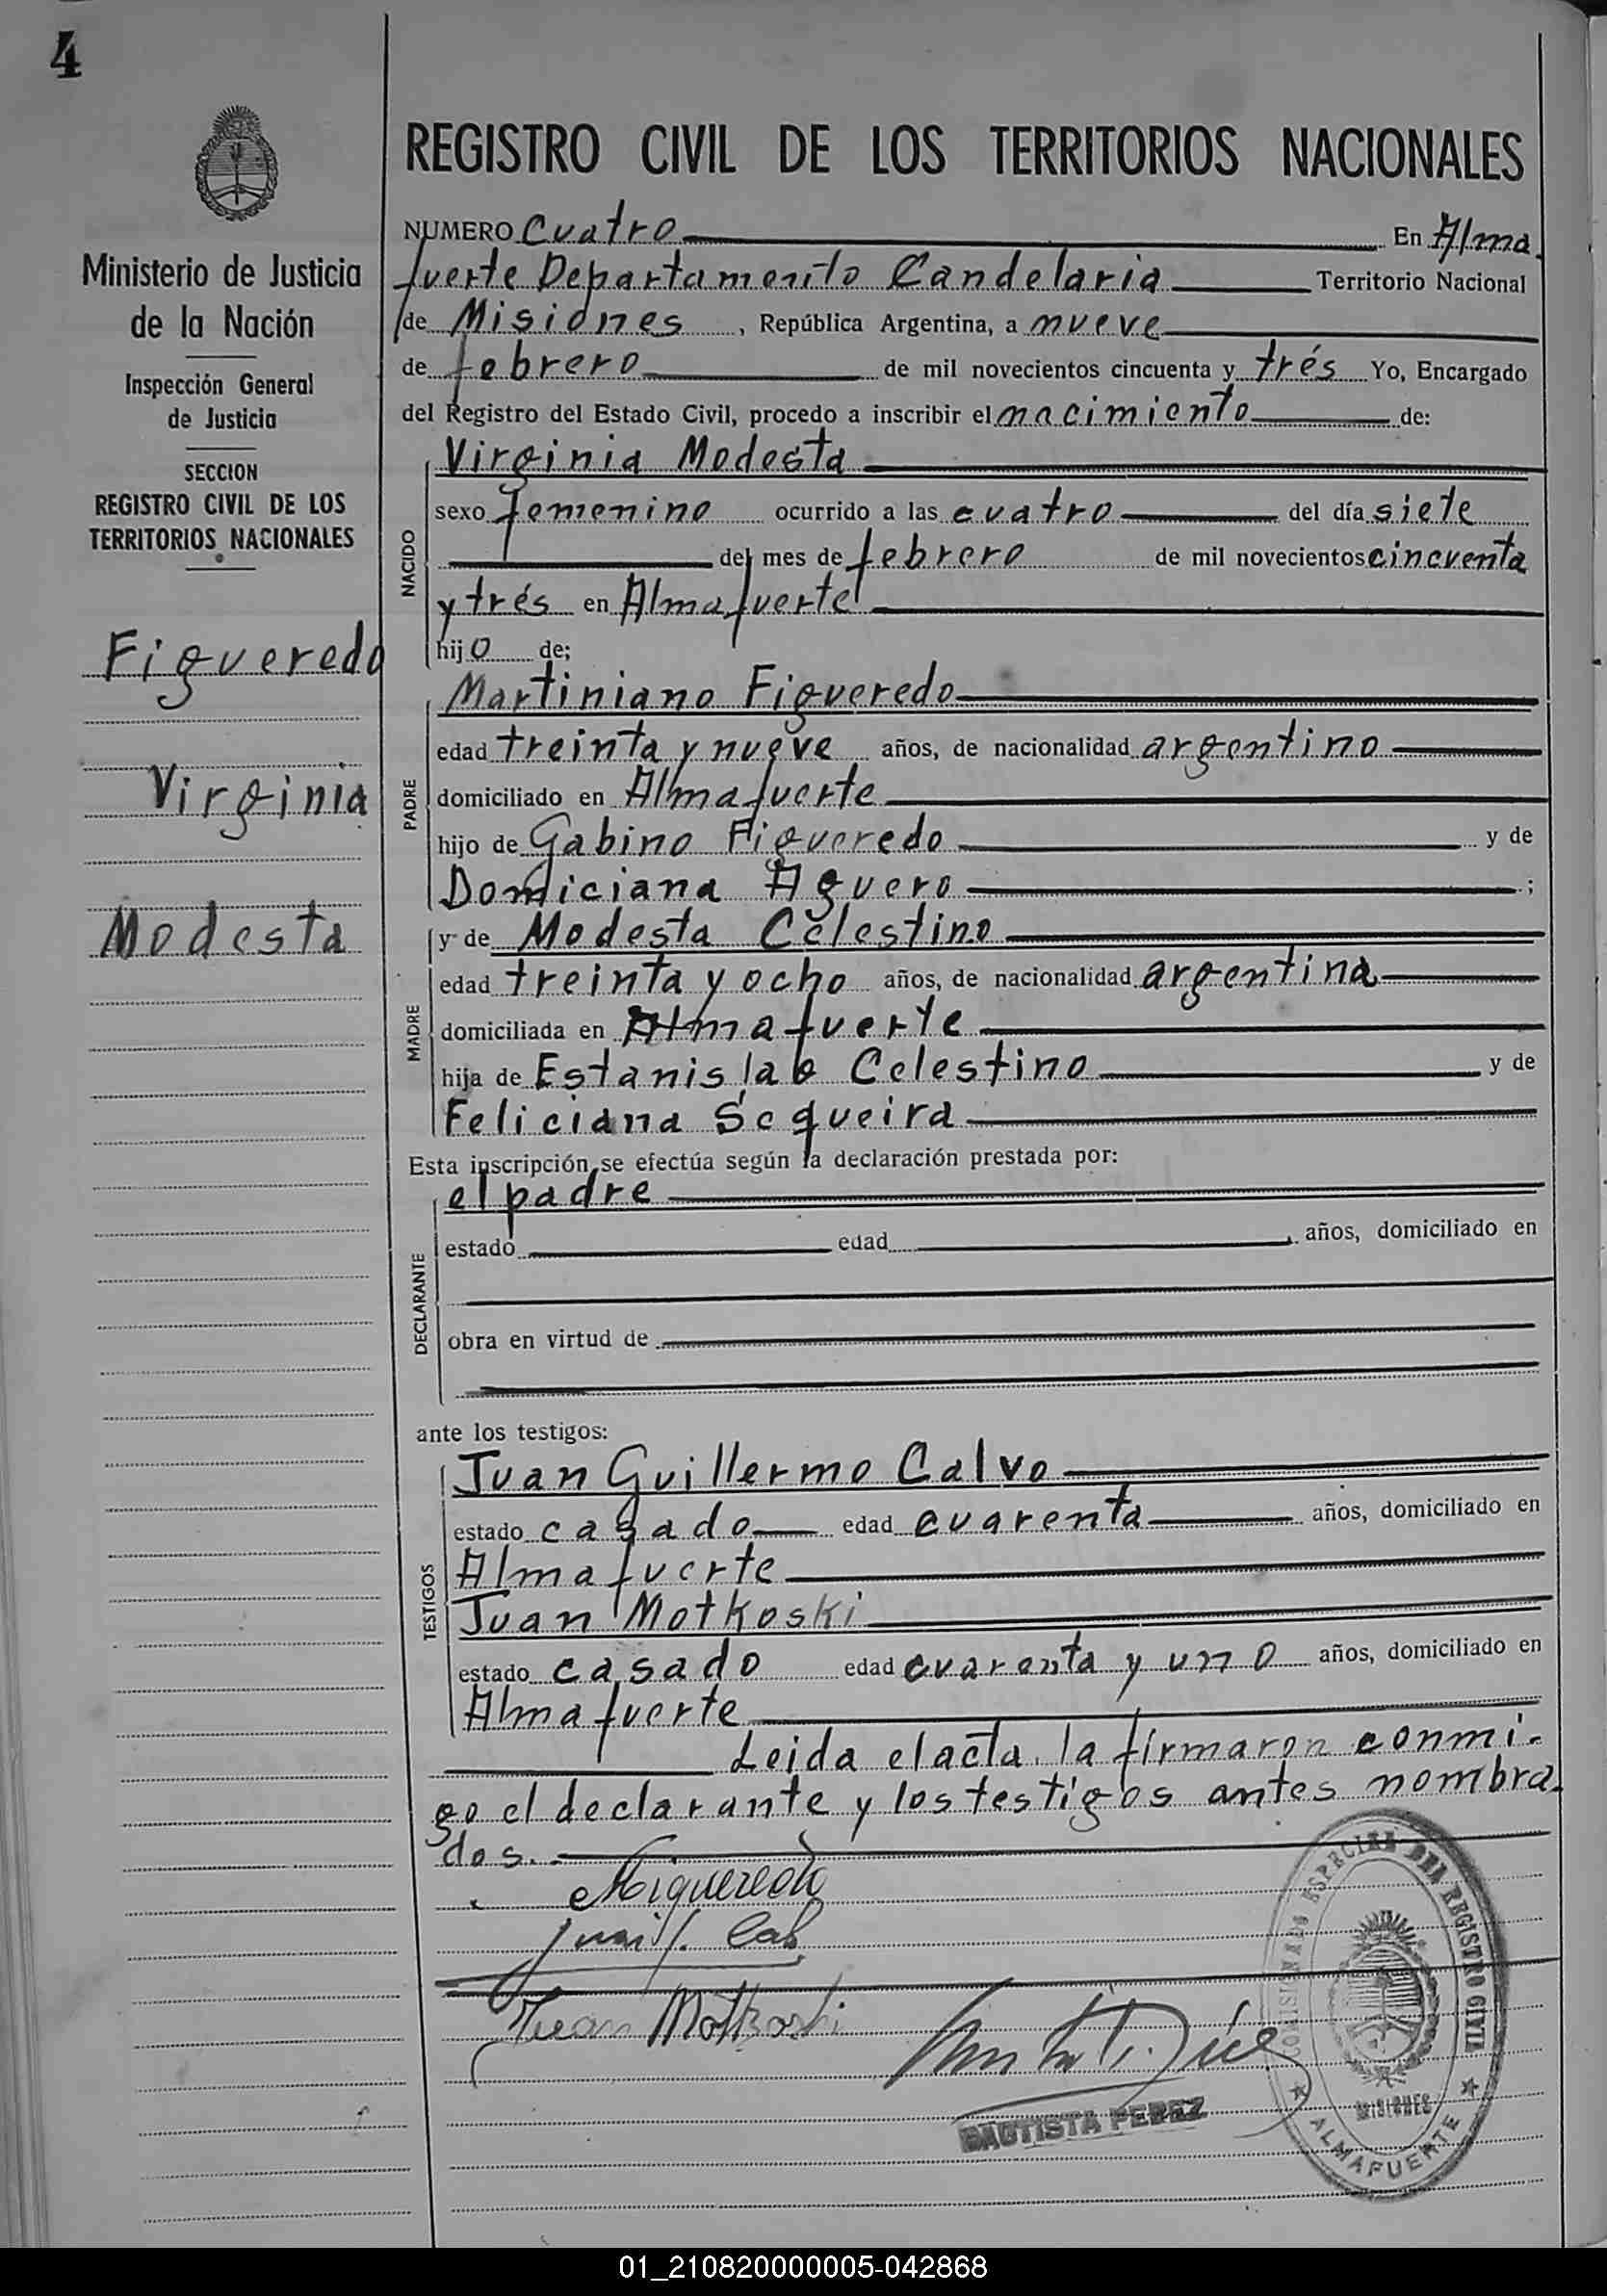 4
REGISTRO CIVIL DE LOS TERRITORIOS NACIONALES
Ministerio de Justicia
de la Nación
Inspección General
de Justicia
SECCION
REGISTRO CIVIL DE LOS
TERRITORIOS NACIONALES
Figueredo
Virginia
Modesta
NUMERO Cuatro En Alma
fuerte Departamento Candelaria Territorio Nacional
de Misiones, República Argentina, a nueve
de febrero de mil novecientos cincuenta y trés Yo, Encargado
del Registro del Estado Civil, procedo a inscribir el nacimiento de:
NACIDO
Virginia Modesta
sexo femenino ocurrido a las cuatro del día siete
del mes de febrero de mil novecientos cincuenta
y trés en Almafuerte
hijo de;
PADRE
Martiniano Figueredo
edad treinta y nueve años, de nacionalidad argentino
domiciliado en Almafuerte
hijo de Gabino Figueredo y de
Domiciana Aguero ;
MADRE
y de Modesta Celestino
edad treinta y ocho años, de nacionalidad argentina
domiciliada en Almafuerte
hija de Estanislao Celestino y de
Feliciana Sequeira
Esta inscripción se efectúa según la declaración prestada por:
DECLARANTE
el padre
estado edad años, domiciliado en
obra en virtud de
ante los testigos:
TESTIGOS
Juan Guillermo Calvo
estado casado edad cuarenta años, domiciliado en
Almafuerte
Juan Motkoski
estado casado edad cuarenta y uno años, domiciliado en
Almafuerte
Leida el acta, la firmaron conmi-
go el declarante y los testigos antes nombra-
dos.
MFigueredo
Juan Motkoski
BAUTISTA PEREZ
COMISIONADO ESPECIAL DEL REGISTRO CIVIL
MISIONES
ALMAFUERTE
01_210820000005-042868